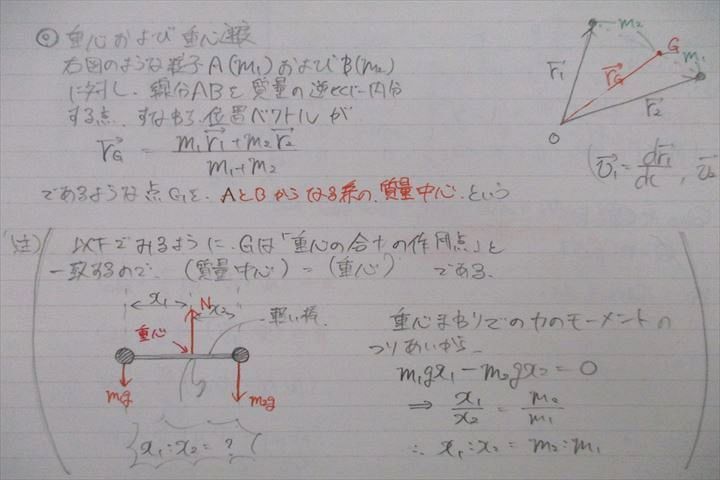 ◎ 重心および重心速度
右図のような粒子A(m₁)およびB(m₂)
に対し、線分ABを質量の逆比に内分
する点、すなわち、位置ベクトルが
r_G→ = (m₁r₁→ + m₂r₂→) / (m₁+m₂)
であるような点Gを、AとBからなる系の、質量中心、という
m₂
G
m₁
r₁→
r_G→
r₂→
O
(v₁→ = dr₁→/dt , v₂
(注) 以下でみるように、Gは「重心の合力の作用点」と
一致するので、(質量中心) = (重心) である。
x₁
N
x₂
重心
軽い棒
m₁g
m₂g
x₁:x₂ = ?
重心まわりでの力のモーメントの
つりあいから、
m₁gx₁ − m₂gx₂ = 0
⇒ x₁/x₂ = m₂/m₁
∴ x₁:x₂ = m₂:m₁